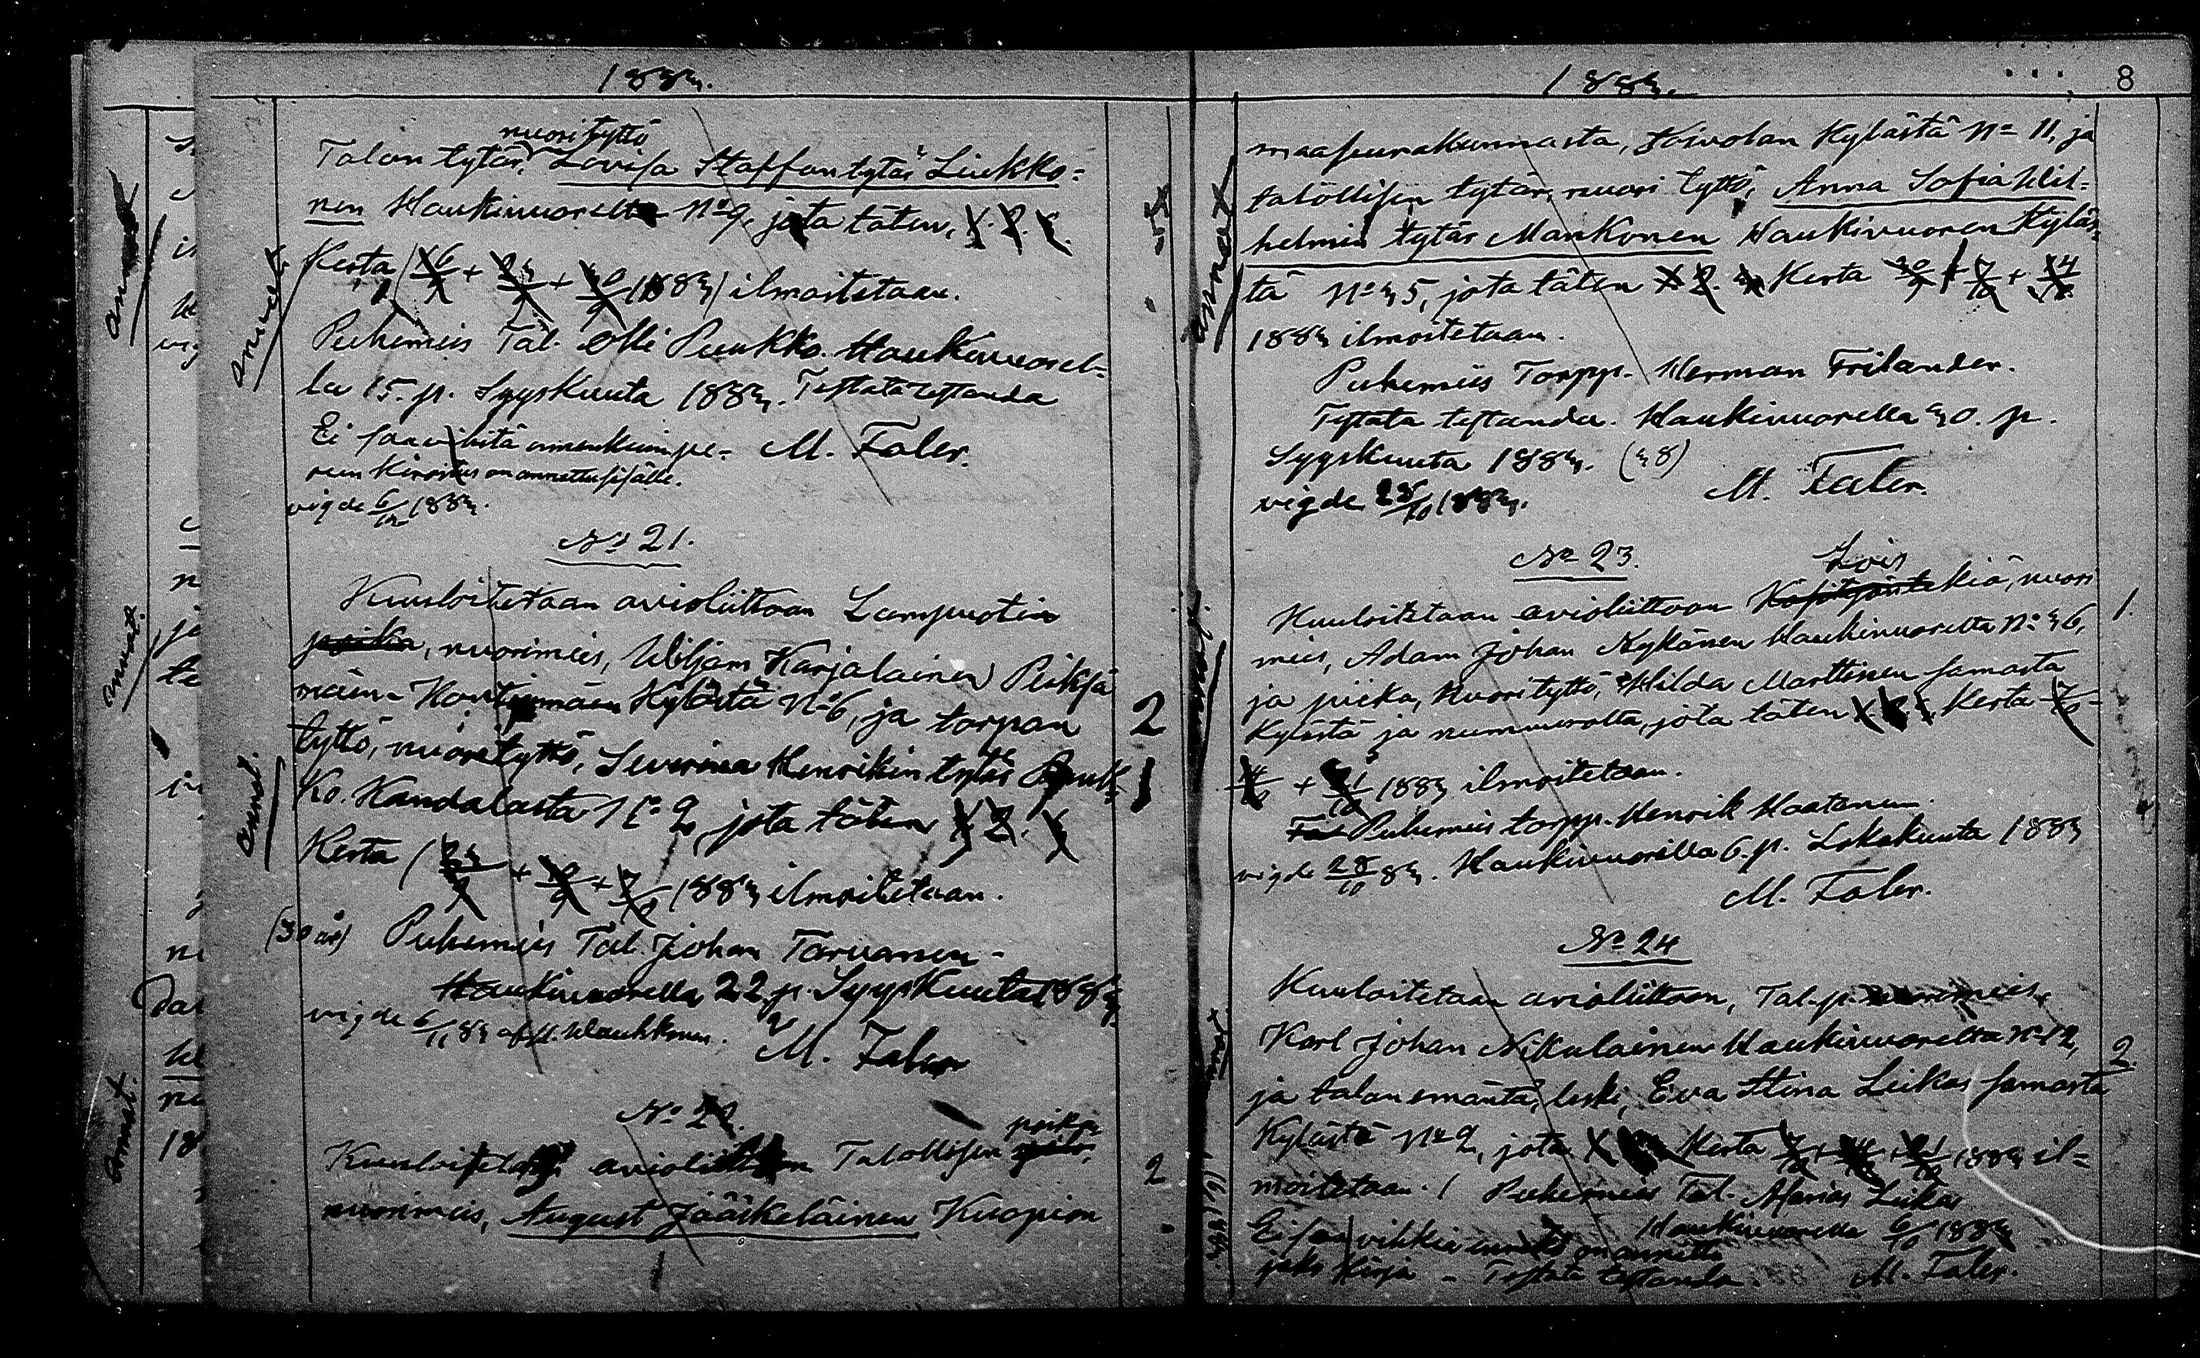 1883.
nuori tyttö
Talon tytär, Lovisa Staffantytär Liukko-
nen Haukivuorelta No 9, jota täten, 1. 2. 3.
Kerta (16/9 + 23/9 + 30/9 1883) ilmoitetaan.
Puhemies Tal. Olli Puukko. Haukivuorel-
la 15. p. Syyskuuta 1883. Testata testanda
Ei saa vihitä ennenkuin pe- M. Faler.
run kirjoitus on annettu sisälle.
vigde 6/12 1883.
No 21.
Kuuloitetaan avioliittoon Lampuotin
poika, nuorimies, Wiljam Karjalainen Pieksä
mäen Kontinmäen Kylästä No 6, ja torpan
tyttö, nuorityttö, Severina Henrikin tytär Puuk-
ko. Kandalasta No 2, jota täten 1. 2. 3.
Kerta (23/9 + 30/9 + 7/10 1883 ilmoitetaan.
(30 år) Puhemies Tal. Johan Tarvanen-
Haukivuorella 22 p. Syyskuuta 1883.
vigde 6/11 83 af H. Hauhkonen.
M. Faler
No 22.
poika
Kuuloitetaan avioliittoon Talollisen
nuorimies, August Jääskeläinen Kuopion
annet.
annet.
2
1
2
1883.
8
maaseurakunnasta, Toivolan Kylästä No 11, ja
talollisen tytär, nuori tyttö, Anna Sofia Wil-
helmin tytär Mankonen Haukivuoren Kyläs-
tä No 35, jota täten 1. 2. 3. Kerta 30/9 + 7/10 + 14/10
1883 ilmoitetaan.
Puhemies Torpp. Herman Frilander.
Testata testanda. Haukivuorella 30. p.
Syyskuuta 1883. (28)
M. Faler.
vigde 28/10 1883.
No 23.
Lois
Kuuloitetaan avioliittoon kiä, nuori
mies, Adam Johan Nykänen Haukivuorelta No 36,
ja piika, Nuorityttö, Hilda Marttinen samasta
Kylästä ja nummerolta, jota täten 1 2 3 Kerta 7/10
14/10 + 21/10 1883 ilmoitetaan.
Puhemies torpp. Henrik Haatanen.
vigde 28/10 83. Haukivuorella 6. p. Lokakuuta 1883
M. Faler.
No 24
Kuuloitetaan avioliittoon, Tal. p. nuorimies,
Karl Johan Nikulainen Haukivuorelta No 12,
ja talon emäntä, leski, Eva Stina Leikas samasta
Kylästä No 2, jota 1 2 3 Kerta 7/10 + 14/10 + 21/10 1883 il-
moitetaan. Puhemies Tal. Leikas
Haukivuorella 6/10 1883
Ei saa vihkiä on annettu
jako kirja - Testata testanda. M. Faler.
annet
annet.
1.
2.